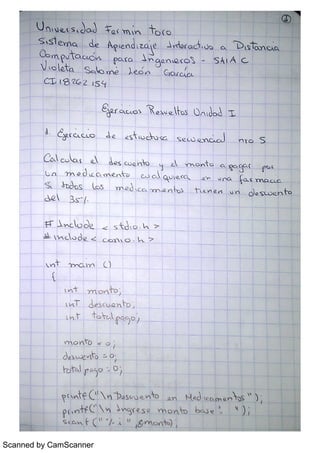 ①
Universidad Fermin toro
Sistema de Aprendizaje Interactivo a Distancia
Computación para Ingenieros - SAIA C
Violeta Salome León García
CI 18262154
Ejercicios Resueltos Unidad I
1 Ejercicio de estructura secuencial nro 5
Calcular el descuento y el monto a pagar por
un medicamento cualquiera en una farmacia
Si todos los medicamentos tienen un descuento
del 35%
# Include < stdio.h >
# include < conio.h >
int main ()
{
int monto;
int descuento;
int totalpago;
monto = 0;
descuento = 0;
total pago = 0;
printf("\n Descuento en Medicamentos");
printf("\n Ingrese monto base: ");
scanf ("%i", &monto);
Scanned by CamScanner